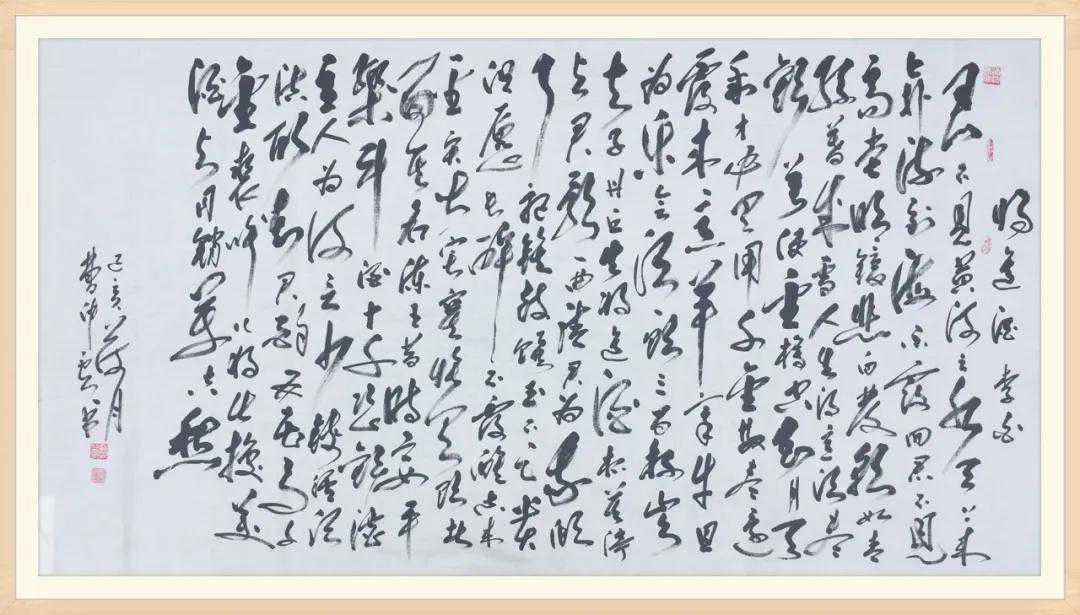 将进酒 李白
君不见黄河之水天上来
奔流到海不复回君不见
高堂明镜悲白发朝如青
丝暮成雪人生得意须尽
欢莫使金樽空对月天
才必有用千金散尽还
复来烹羊宰牛且
为乐会须一饮三百杯岑
夫子丹丘生将进酒杯莫停
与君歌一曲请君为我倾
耳听钟鼓馔玉不足贵
但愿长醉不复醒古来
圣贤皆寂寞惟有饮
者留其名陈王昔时宴平
乐斗酒十千恣欢谑
主人为何言少钱径须沽
取对君酌五花马千
金裘呼儿将出换美
酒与尔同销万古愁
己亥荷月